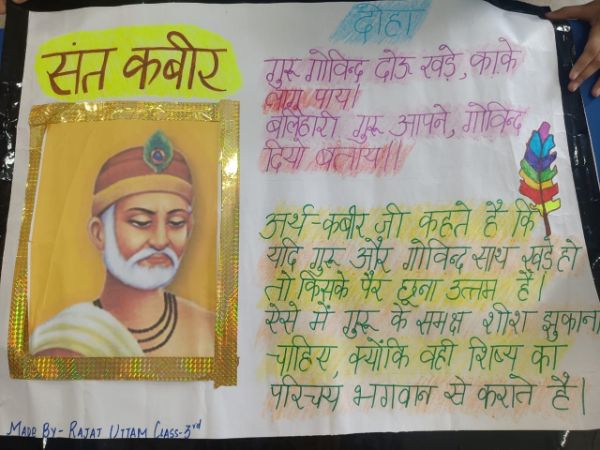 संत कबीर
दोहा
गुरू गोविन्द दोऊ खड़े, काके
लागू पाय।
बलिहारी गुरू आपने, गोविन्द
दियो बताय।।
अर्थ-कबीर जी कहते है कि
यदि गुरू और गोविन्द साथ खड़े हो
तो किसके पैर छूना उत्तम है।
ऐसे में गुरू के समक्ष शीश झुकाना
चाहिए, क्योंकि वही शिष्य का
परिचय भगवान से कराते है।
MADE BY- RAJAT UTTAM CLASS-3rd